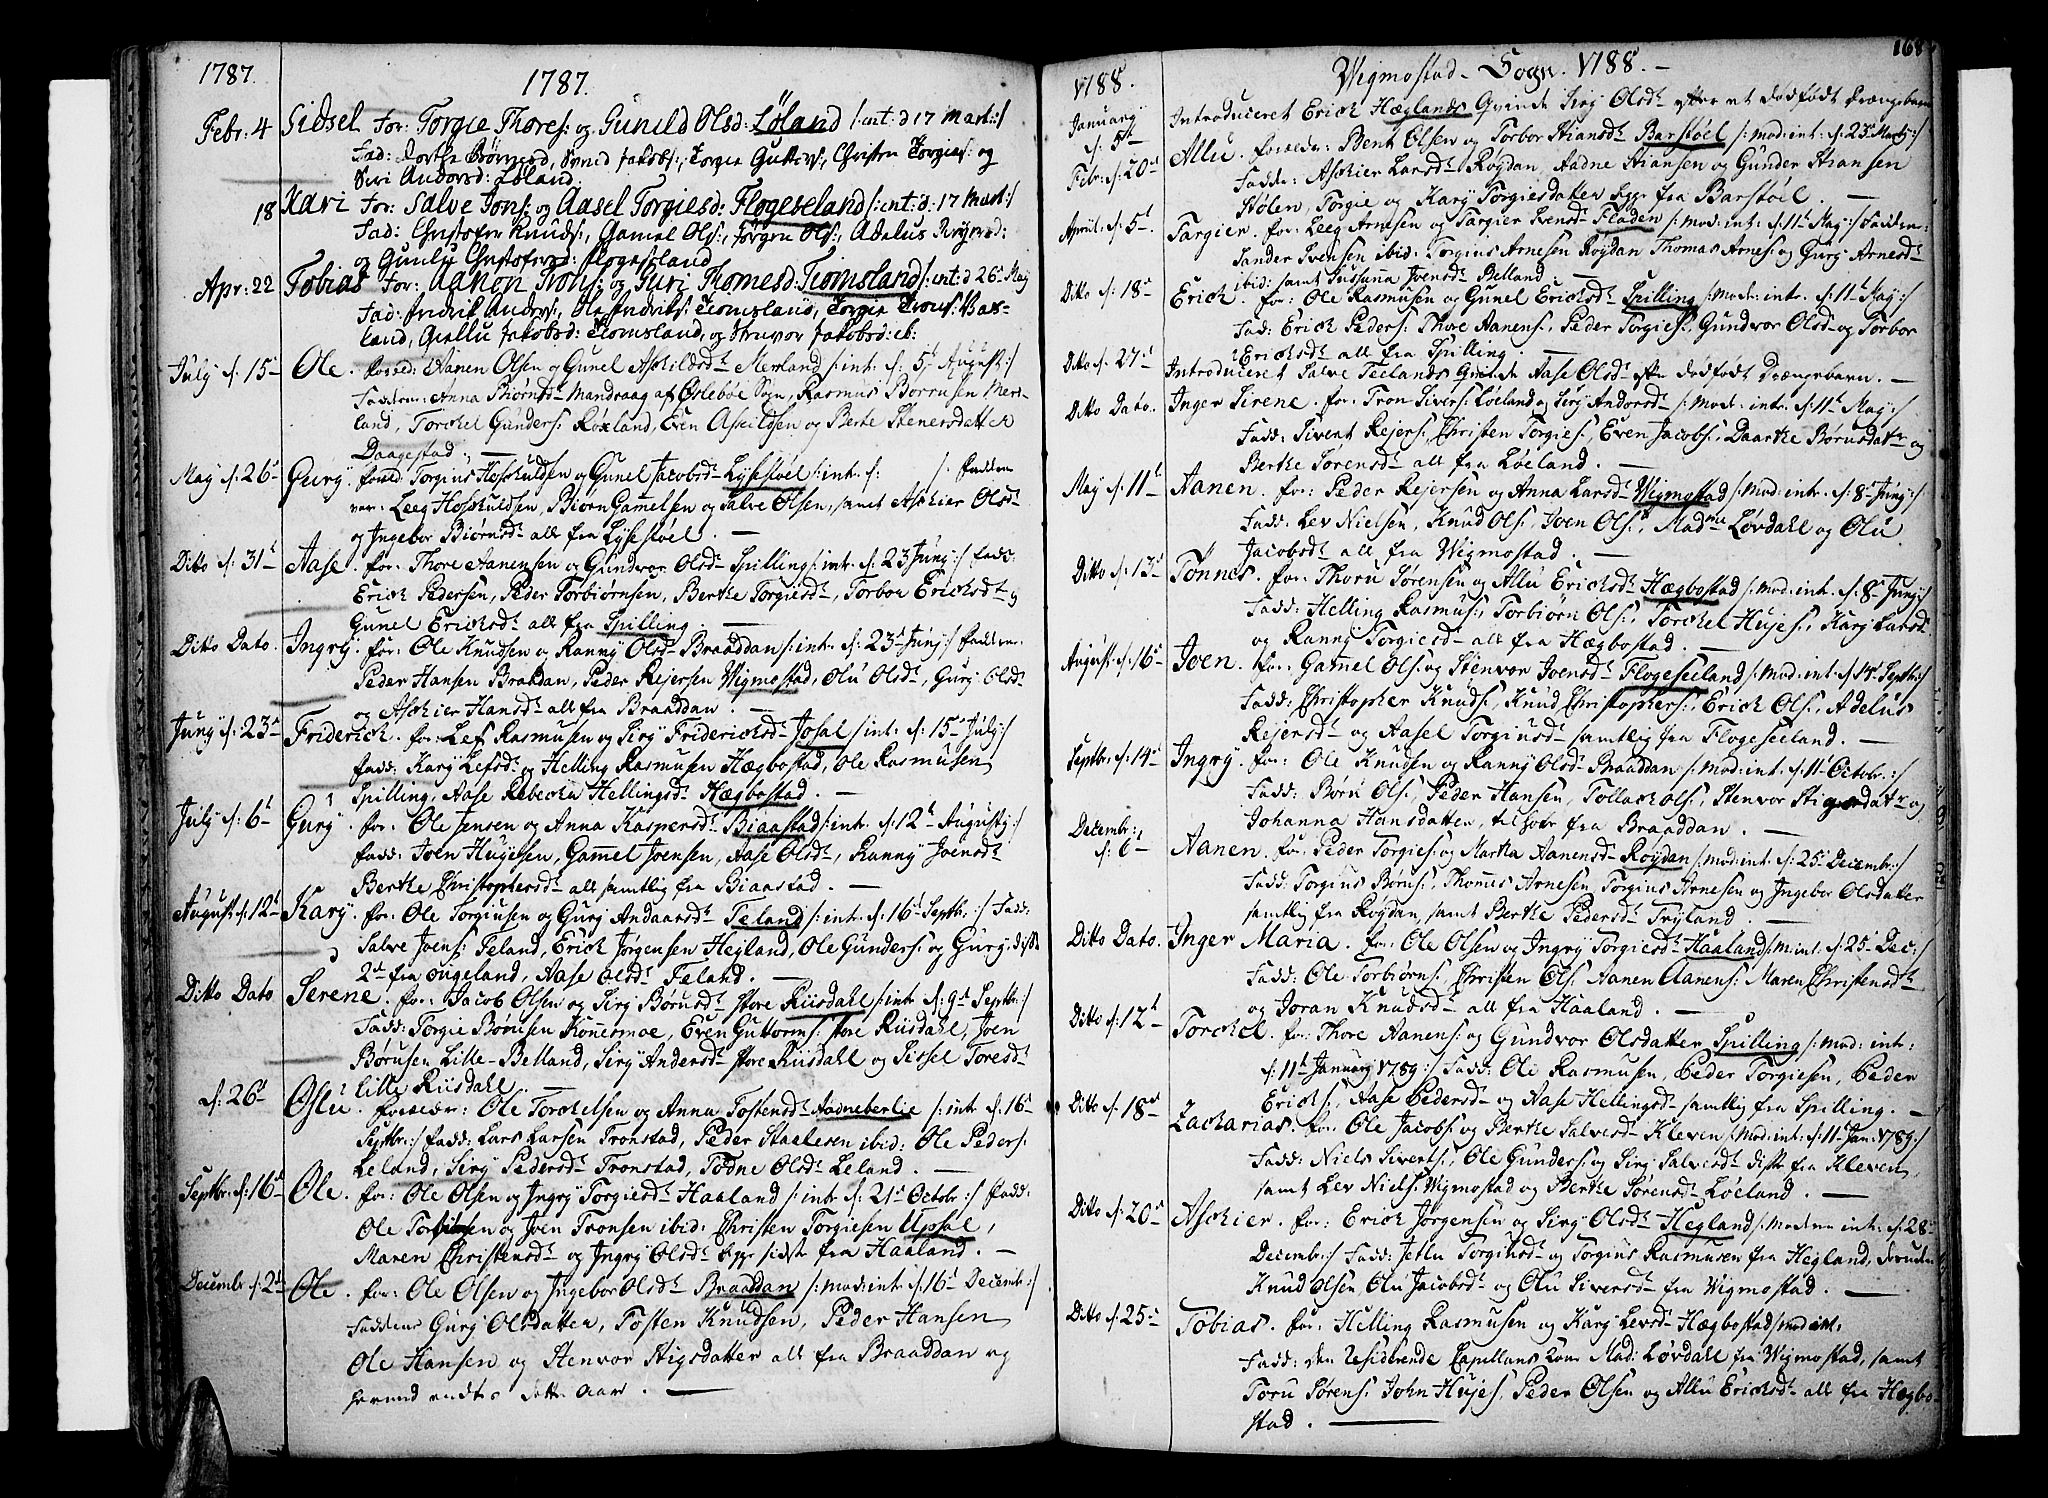 1787.
1787.
Febr: 4 Sidsel For: Torgie Thores: og Gunild Olsd: Løland /:int: d 17 Mart:/
Fad: Børresd, Svend Jakobs:, Torgie Guttors:, Christen Torgies: og
Siri Andorsd: Løland.
18 Kari For: Salve Jons: og Aasel Torgiesd: Flogeveland /:int: d: 17 Mart:/
Fad: Christofer Knuds:, Gamel Ols:, Jørgen Ols:, Adelus Reyersd:
og Gunlu Christofersd: Flogesland
Apr: 22 Tobias For: Aanon Trons: og Guri Thomesd: Tiomsland /:int: d 26 May
Fad: Fredrik Anders:, Ole Fredriks: Tiomsland, Torgie Trons:
land, Giellu Jakobsd: Tiomsland, og Struvor Jakobsd: ib:
July d: 15 Ole. Foræld: Aanen Olsen og Gunel Askildsd: Mersland /:int: d: 5 August:/
Faddern: Anna Biørnsd: Mandraag af Øslebøe Sogn, Rasmus Børrusen Mers-
land, Torckel Gunders: Røxland, Even Askildsen og Berte Stenersdatter
Daagestad. —
May d: 26 Gury. foræld: Torgius Hoskuldsen og Gunel Jacobsd: Lysestøel /:int: d: /: fadder
var: Leeg Hoskuldsen, Biørn Gamelsen og Salve Olsen, samt Askier Olsd:
og Ingebor Biørnsd: all fra Lysestøel. —
Ditto d: 31 Aase. for: Thore Aanensen og Gundvor Olsd: Spilling /:int: d: 23 Juny:/ fadd:
Erick Pedersen, Peder Torbiørnsen, Berthe Torgiesd:, Torbor Ericksd: og
Gunel Ericksd: all fra Spilling. —
Ditto Dato. Ingry. for: Ole Knudsen og Ranny Olsd: Braaddan /:int: d: 23 Juny:/ faddern:
Peder Hansen Braadan, Peder Rejersen Wigmostad, Olu Olsd:, Gury Olsd:
og Askier Hansd: all fra Braaddan. —
Juny d: 23 Friderick. for: Lef Rasmusen og Siry Fridericksd: Josal /:int: d: 15 July:/
fadd: Kary Lefsd: og Helling Rasmusen Hægbostad, Ole Rasmusen
Spilling, Aase Rebecka Hellingsd: Hægbostad. —
July d: 6 Gury. for: Ole Jensen og Anna Kaspersd: Biaastad /:int: d: 12 Augusty:/
fadd: Joen Hujesen, Gamel Joensen, Aase Olsd:, Ranny Joensd:
Berthe Christophersd: all samtlig fra Biaastad. —
August d: 12 Kary. for: Ole Torgiusen og Gury Andaarsd: Teland /:int: d: 16 Septbr:/ Fadd:
Salve Joens: Teland, Erick Jørgensen Hegland, Ole Gunders: og Gury, disse
2de fra Ougeland, Aase Olsd: Teland. —
Ditto Dato Serene. for: Jacob Olsen og Siry Børusd: store Riisdahl /:int: d: 9 Septbr:/
Fadd: Torgie Børusen Konesmoe, Even Guttorms: store Riisdahl, Joen
Børusen Lille-Belland, Siry Andersd: store Riisdahl og Sissel Toresd:
lille Riisdahl. —
d: 26 Oslu. forældr: Ole Torckelsen og Anna Tostensd: Aadneberlie /:int: d: 16
Septbr:/ fadd: Lars Larsen Tronstad, Peder Staalesen ibid: Ole Peders:
Leland, Siry Pedersd: Tronstad, Tødne Olsd: Leland. —
Septbr: d: 16 Ole. for: Ole Olsen og Ingry Torgiesd: Haaland /:int: d: 21 Octobr:/ fadd:
Ole og Joen Tronsen ibid: Christen Torgiesen Upsal,
Maren Christensd: og Ingry Olsd: begge sidste fra Haaland. —
Decembr d: 2 Ole. for: Ole Olsen og Ingebor Olsd: Braaddan /:mod: int: d: 16 Decembr:/
Faddere Gury Olsdatter, Tosten Knudsen, Peder Hansen
Ole Hansen og Stenvor Stigsdatter all fra Braaddan og
hermed endtes dette Aar. —
168
1788.
Wigmostad Sogn. 1788. —
January d: 5 Introduceret Erick Hæglands Qvinde Siry Olsd: efter et dødfødt Drængebarn
Febr: d: 20 Allu. forældr: Bent Olsen og Torbor Stiansd: Barstøel /:mod: int: d: 23 Marty:/
Faddr: Askier Larsd: Røgdan, Aadne Stiansen og Gunder Stiansen
Hølen, Torgie og Kary Torgiesdatter begge fra Barstøel. —
April: d: 5 Targier. for: Leeg Arnesen og Targier Svensd: Fladen /:mod: int: d: 11 May:/ Faddere:
Sander Svensen ibid: Torgius Arnesen Roydan Thomas Arnes: og Gury Arnesd:
ibid: samt Sussanna Joensd: Belland: —
Ditto d: 18 Erick. for: Ole Rasmusen og Gunel Ericksd: Spilling /:Mod: intr: d: 11 May:/
Fadd: Erick Peders: Thore Aanens:, Peder Torgies:, Gundvor Olsd: og Torbor
Ericksd: all fra Spilling. —
Ditto d: 27 Introduceret Salve Teelands Qvinde Aase Olsd: efter dødfødt Drængebarn. —
Ditto Dato. Inger Sirene. for: Tron Sivers: Løeland og Siry Andorsd: /:Mod: intr: d: 11 May:/
Fadd: Sivert Rejers:, Christen Torgies:, Even Jacobs:, Daarthe Børusdatr og
Berthe Sørensd: all fra Løeland. —
May d: 11 Aanen. for: Peder Rejersen og Anna Larsd: Wigmostad /:Mod: intr: d: 8 Juny:/
Fadd: Lev Nielsen, Knud Ols: Joen Ols:, Madme Løvdahl og Olu
Jacobsd: all fra Wigmostad. —
Ditto d: 13 Tønnes. for: Thoru Sørensen og Allu Ericksd: Hægbostad /:mod: int: d: 8 Juny:/
Fadd: Helling Rasmus:, Torbiørn Ols:, Torckel Hujes:, Kary Larsd:
og Ranny Torgiesd: all fra Hægbostad. —
August: d: 16 Joen. for: Gamel Ols: og Stenvor Joensd: Flogeseeland /:mod: int: d: 14 Septbr:/
Fadd: Christopher Knuds:, Knud Christophers:, Erick Ols:, Adelus
Rejersd: og Aasel Torgiusd: samtlig fra Flogeseeland. —
Septbr: d: 14 Ingry. for: Ole Knudsen og Ranny Olsd: Braaddan /:mod: int: d: 11 Octobr:/
Fadd: Børu Ols:, Peder Hansen, Tollack Ols:, Stenvor Stigsdatr og
Johanna Hansdatter, tilhobe fra Braaddan. —
Decembr: d: 6 Aanen. for: Peder Torgies: og Martha Aanensd: Roydan /:mod: int: d: 25 Decembr:/
Fadd: Torgius Børus:, Thomes Arnesen, Torgius Arnesen og Ingebor Olsdatter
samtlig fra Røydan, samt Berthe Pedersd: Tryland. —
Ditto Dato. Inger Maria. for: Ole Olsen og Ingry Torgiesd: Haaland /:M: int: d: 25 Dec:/
Fadd: Ole Torbiørns:, Christen Ols:, Aanen Aanens: Maren Christensd:
og Joran Knudsd: all fra Haaland. —
Ditto d: 12 Torckel. for: Thore Aanens: og Gundvor Olsdatter Spilling /:mod: int:
d: 11 January 1789:/ Fadd: Ole Rasmusen, Peder Torgiesen, Peder
Ericks:, Aase Pedersd: og Aase Hellingsd: samtlig fra Spilling. —
Ditto d: 18 Zacharias. for: Ole Jacobs: og Berthe Salvesd: Kleven /:mod: int: d: 11 Jan: 1789:/
Fadd: Niels Siverts:, Ole Gunders: og Siry Salvesd: disse fra Kleven,
samt Lev Niels: Wigmostad og Berthe Sørensd: Løeland. —
Ditto d: 20 Askier. for: Erick Jørgensen og Siry Olsd: Hegland /:Moderen int: d: 28
Decembr:/ Fadd: Jetlu Torgiusd: og Torgius Rasmusen fra Hegland,
Knud Olsen, Olu Jacobsd: og Olu Siversd: fra Wigmostad. —
Ditto d: 25 Tobias. for: Helling Rasmusen og Kary Levsd: Hægbostad /:mod int:
Fadd: den residerende Capellans Kone Mad: Løvdahl fra Wigmostad, samt
Toru Sørens: John Hujes:, Peder Olsen og Allu Ericksd: all fra Hægbo-
stad. —